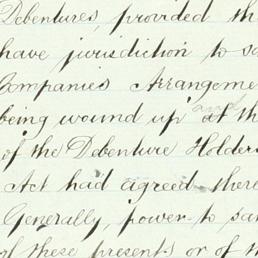 Debentures, provided th
have jurisdiction to sa
Companies Arrangeme
being wound up and at th
of the Debenture Holders
Act had agreed there
Generally, power to san
of these presents or of th